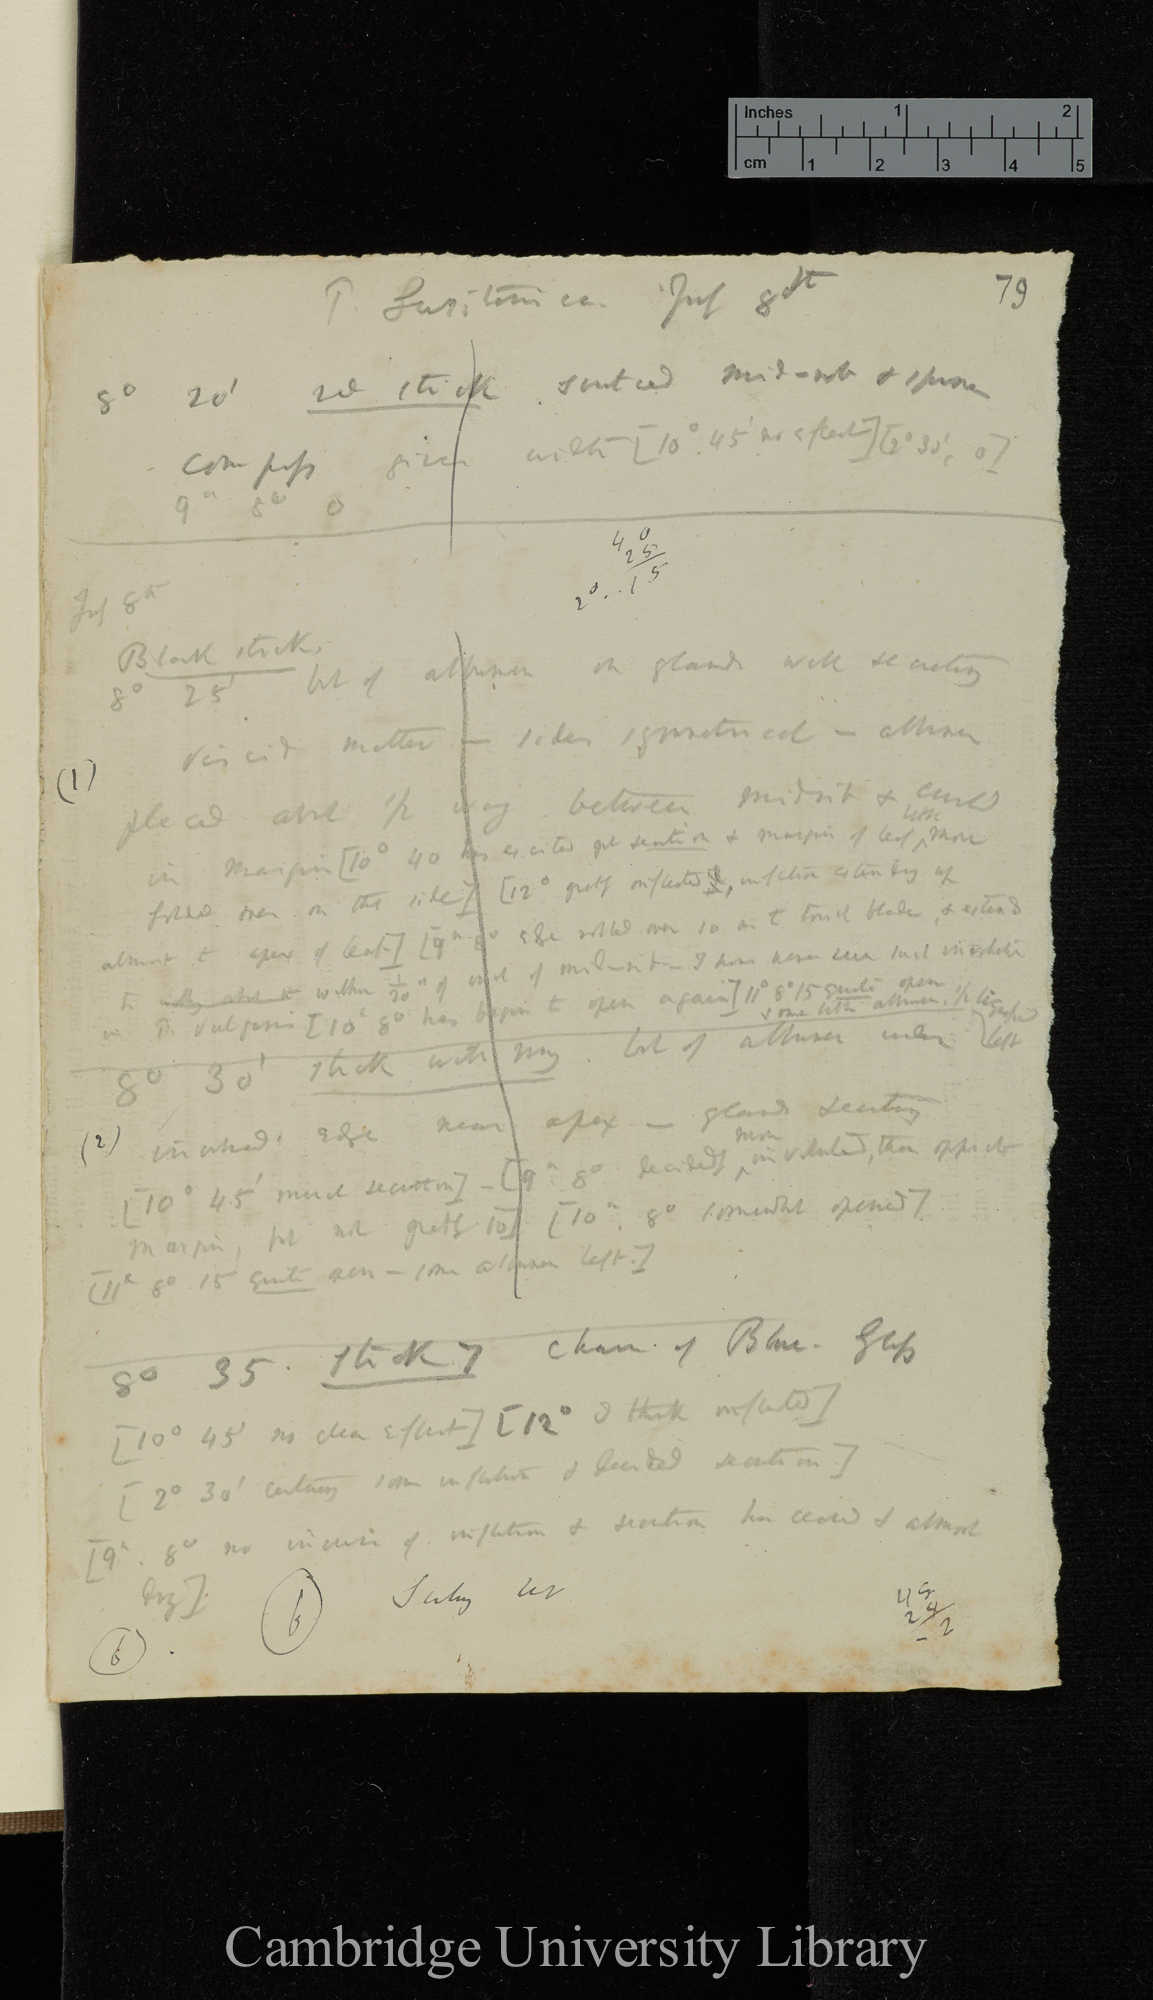 Inches 1 2
cm 1 2 3 4 5
79
P. Lusitanica July 8th
8° 20' red stick
given with [10°. 45' no effect] [2° 30', 0]
9 8 0
40
25
2°..15
July 8th
Black stick.
8° 25' bit of albumen on glands well secreting
viscid matter — sides symmetrical — albumen
(1)
placed about 1/2 way between midrib & curled
in margin [10° 40 has excited great secretion & margin of leaf more
folded over on this side] [12° greatly inflected, inflection extending up
almost to apex of leaf] [9 8° edge rolled over so as to touch blade, & extends
to within 1/20" of end of mid-rib — I have never seen such
in P. vulgaris [10 8° has begun to open again] 11° 8° 15 quite open
some little albumen left
8° 30' stick with ring. bit of albumen under
(2) involved edge near apex — glands secreting
[10° 45' much secretion] — [9 8° decidedly more involuted, than opposite
margin, but not greatly so] [10. 8° somewhat opened]
[11 8° 15 quite open — some albumen left.]
8° 35. stick 7 of Blue. Glass
[10° 45' no clear effect] [12° I think inflected]
[2° 30' certainly some inflection & decided secretion.]
[9. 8° no increase of inflection & secretion has ceased & almost
dry].
6
6